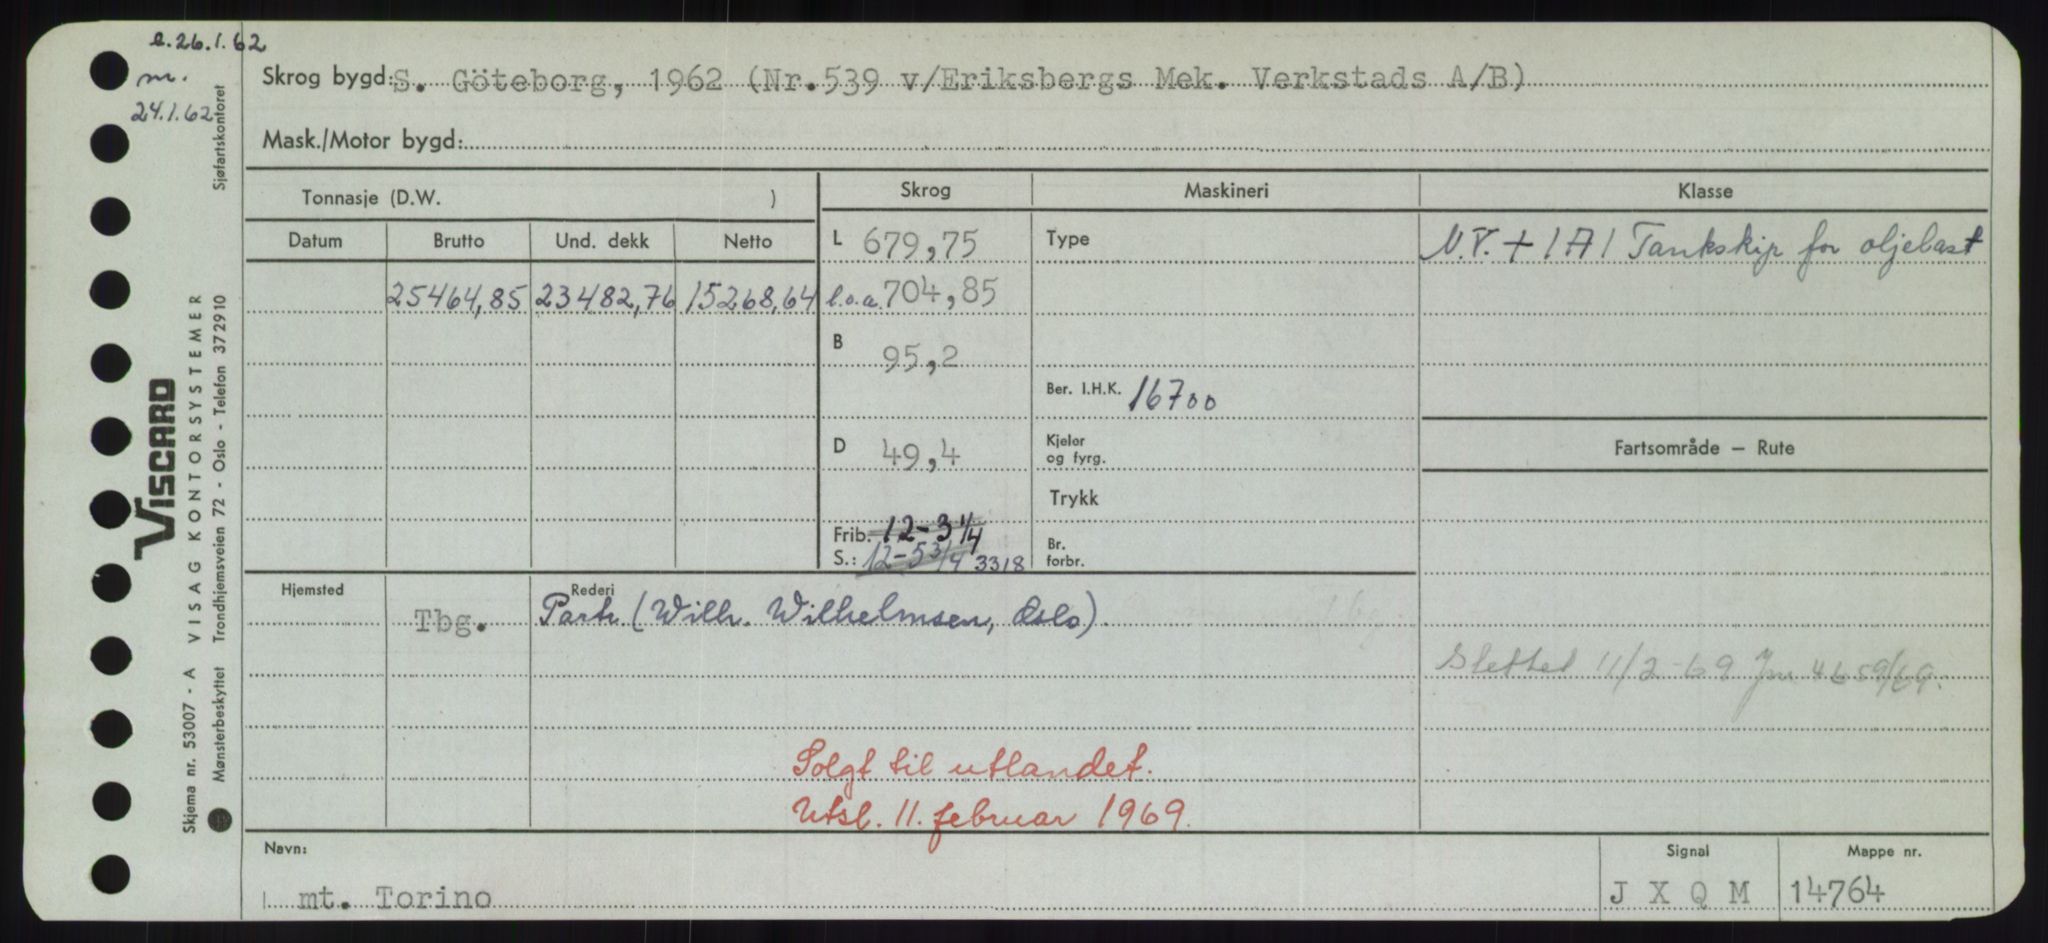 e.26.1.62
m.
24.1.62
Skrog bygd: S. Göteborg, 1962 (Nr.539 v/Eriksbergs Mek. Verkstads A/B)
Mask./Motor bygd:
Sjøfartskontoret
Tonnasje (D.W. )
Skrog
Maskineri
Klasse
Datum
Brutto
Und. dekk
Netto
L 679,75
Type
N.V. + 1A1 Tankskip for oljelast
25464,85 23482,76 15268,64
l.o.a. 704,85
B 95,2
Ber. I.H.K. 16700
D 49,4
Kjeler
og fyrg.
Fartsområde – Rute
Trykk
Frib. 12-3 1/4
S.: 12-5 3/4 3318
Br.
forbr.
Hjemsted
Tbg.
Rederi
Partr. (Wilh. Wilhelmsen, Oslo).
Slettet 11/2-69 Jnr 4659/69.
Solgt til utlandet.
Utsl. 11. februar 1969.
Navn:
mt. Torino
Signal
J X Q M
Mappe nr.
14764
VISCARD
VISAG KONTORSYSTEMER
Skjema nr. 53007 - A
Mønsterbeskyttet Trondhjemsveien 72 - Oslo - Telefon 37 29 10